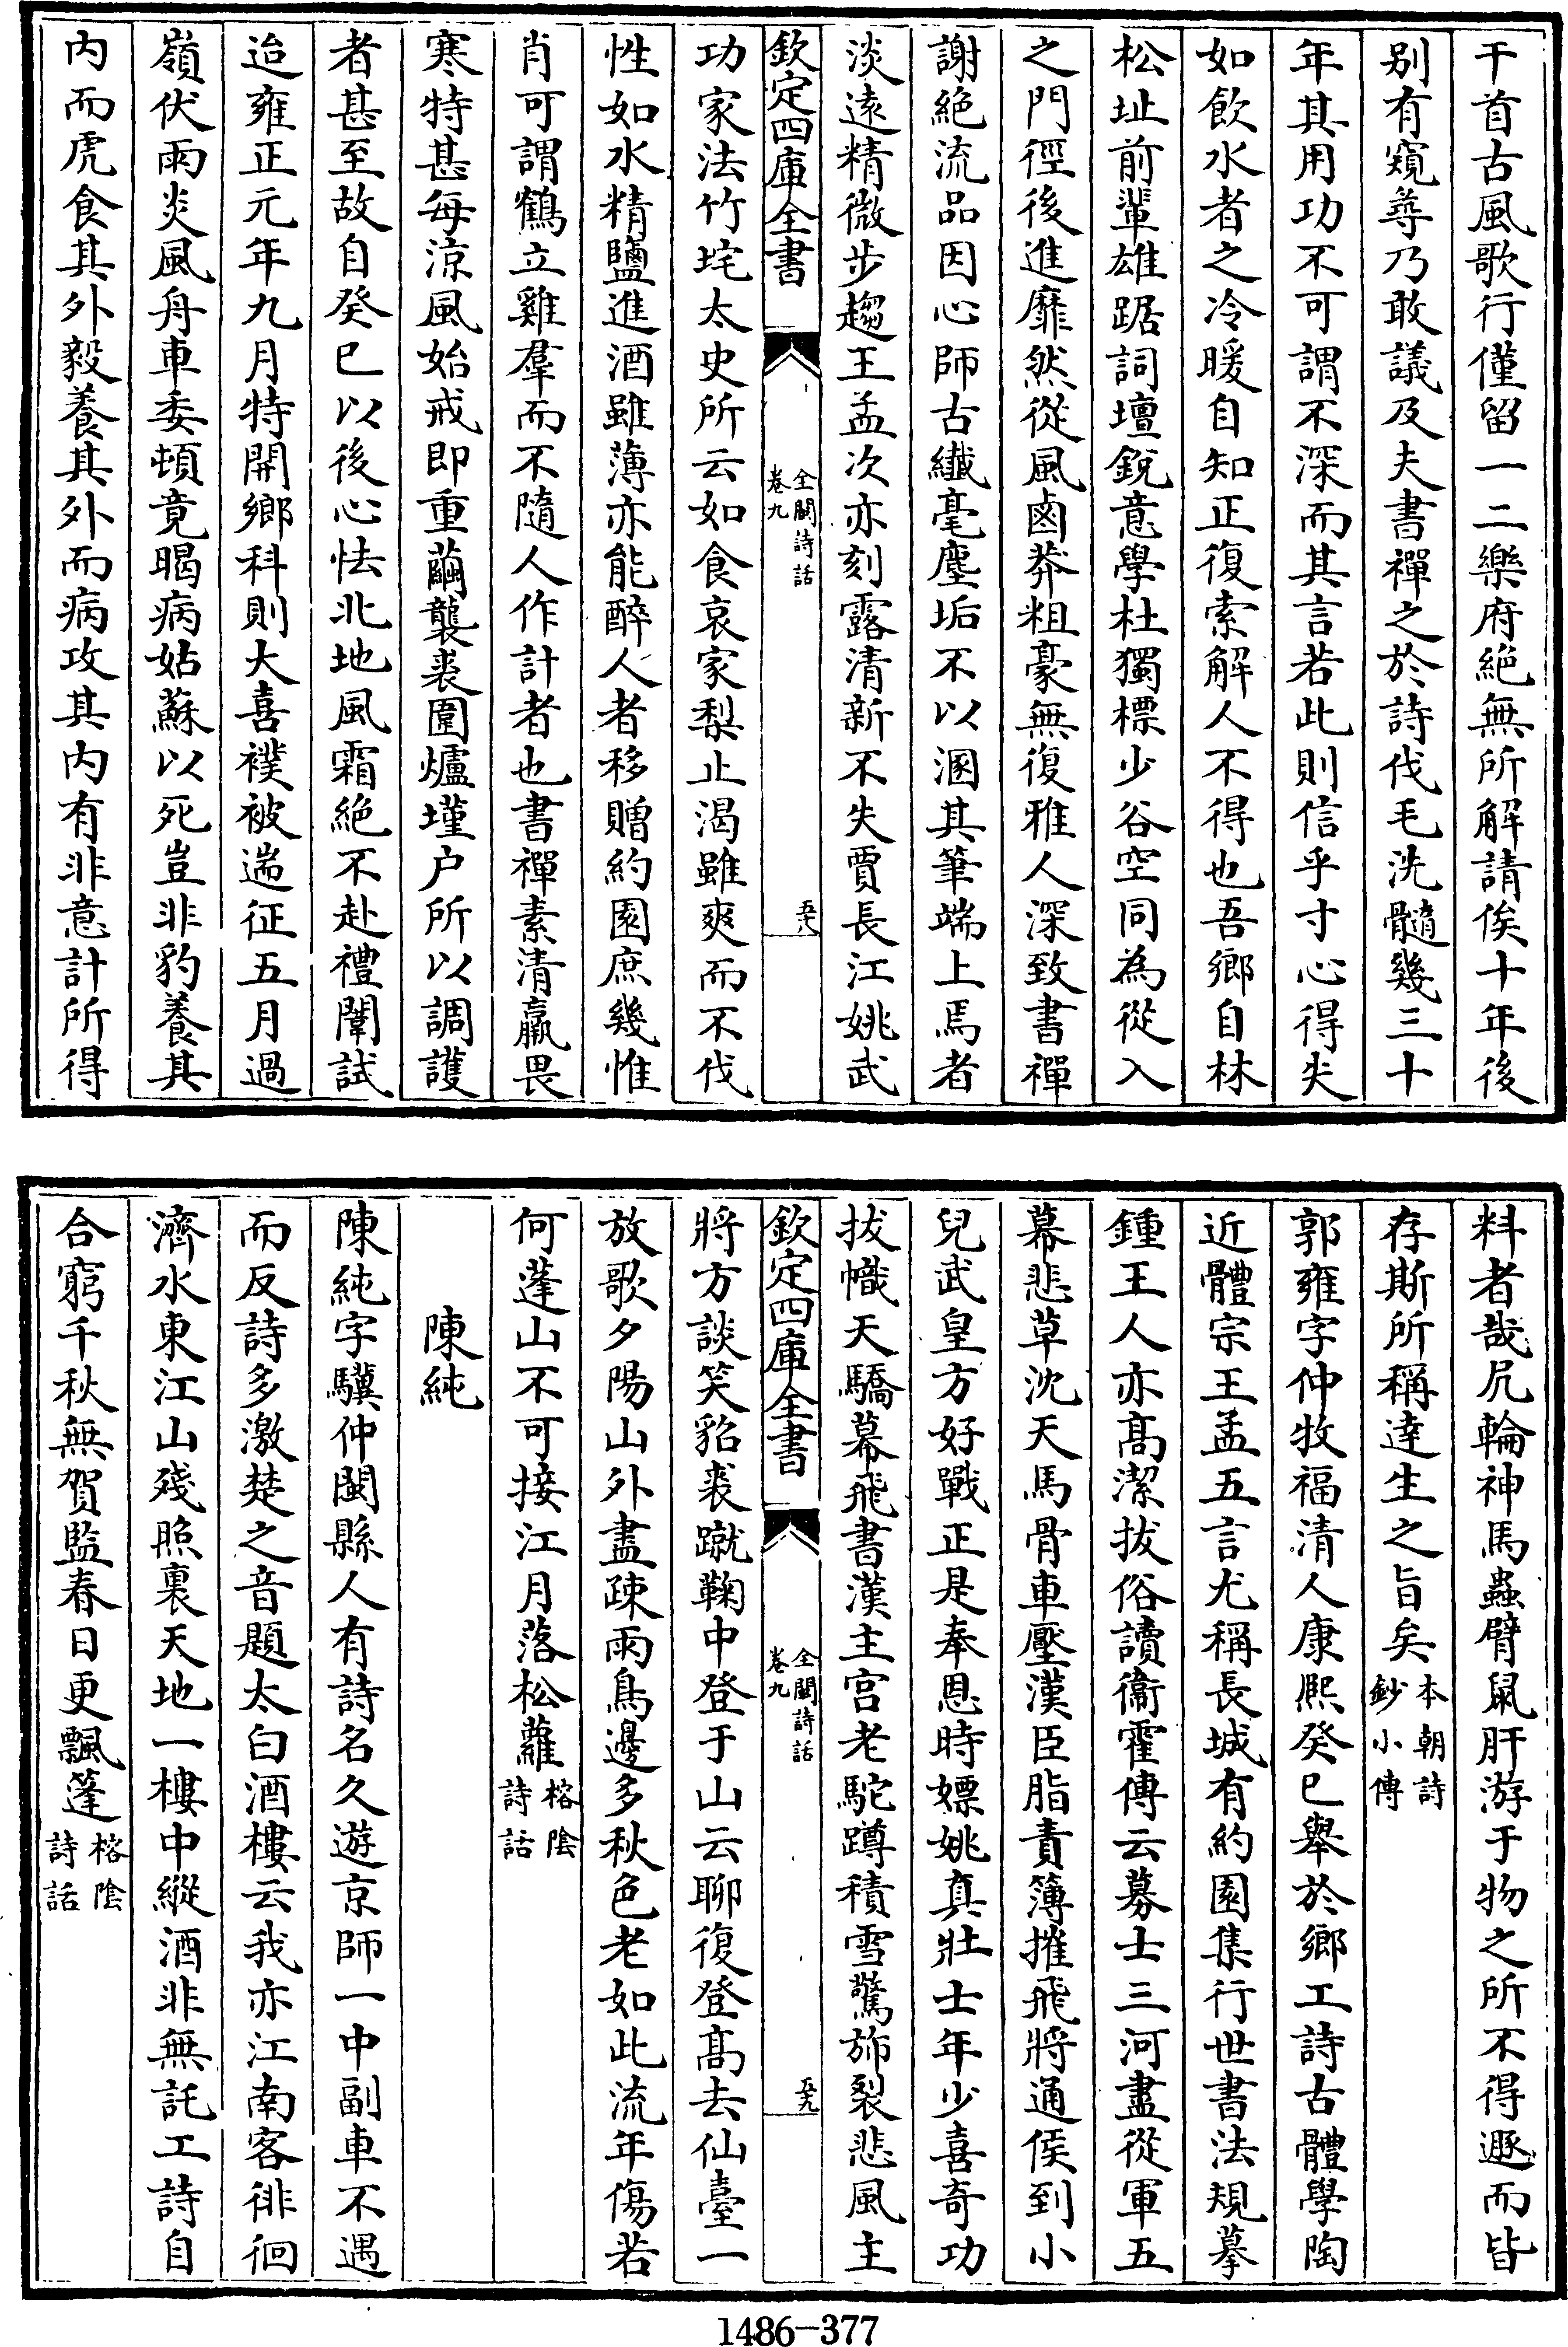 干首古風歌行僅留一二樂府絶無所解請俟十年後
别有窺尋乃敢議及夫書禪之於詩伐毛洗髓幾三十
年其用功不可謂不深而其言若此則信乎寸心得失
如飲水者之冷暖自知正復索解人不得也吾鄉自林
松址前輩雄踞詞壇銳意學杜獨標少谷空同為從入
之門徑後進靡然從風鹵莽粗豪無復雅人深致書禪
謝絶流品因心師古纎毫塵垢不以溷其筆端上焉者
淡遠精微步趨王孟次亦刻露清新不失賈長江姚武
欽定四庫全書
全閩詩話
卷九
五十八
功家法竹垞太史所云如食哀家梨止渴雖爽而不伐
性如水精鹽進酒雖薄亦能醉人者移贈約園庶幾惟
肖可謂鶴立雞羣而不隨人作計者也書禪素清羸畏
寒特甚每涼風始戒即重繭襲裘圍爐墐户所以調護
者甚至故自癸巳以後心怯北地風霜絶不赴禮闈試
迨雍正元年九月特開鄉科則大喜襆被遄征五月過
嶺伏雨炎風舟車委頓竟暍病姑蘇以死豈非豹養其
内而虎食其外毅養其外而病攻其内有非意計所得
料者哉尻輪神馬蟲臂鼠肝游于物之所不得遯而皆
存斯所稱達生之旨矣本朝詩
鈔小傳
郭雍字仲牧福清人康熙癸巳舉於鄉工詩古體學陶
近體宗王孟五言尤稱長城有約園集行世書法規摹
鍾王人亦髙潔拔俗讀衞霍傳云募士三河盡從軍五
幕悲草沈天馬骨車壓漢臣脂責簿摧飛將通侯到小
兒武皇方好戰正是奉恩時嫖姚真壯士年少喜奇功
拔幟天驕幕飛書漢主宫老駝蹲積雪驚斾裂悲風主
欽定四庫全書
全閩詩話
卷九
五十九
將方談笑貂裘蹴鞠中登于山云聊復登髙去仙臺一
放歌夕陽山外盡疎雨鳥邊多秋色老如此流年傷若
何蓬山不可接江月落松蘿榕陰
詩話
陳純
陳純字驥仲閩縣人有詩名久遊京師一中副車不遇
而反詩多激楚之音題太白酒樓云我亦江南客徘徊
濟水東江山殘照裏天地一樓中縱酒非無託工詩自
合窮千秋無賀監春日更飄蓬榕陰
詩話
1486-377